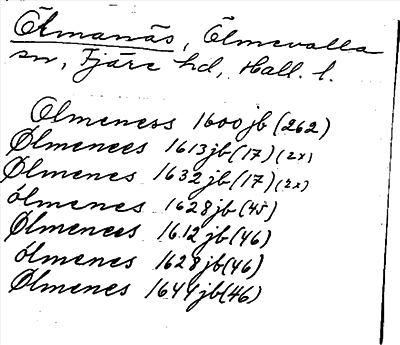 Ölmanäs, Ölmevalla
sn, Fjäre hd, Hall. l.
Olmeness 1600 jb (262)
Ølmenees 1613 jb (17) (2x)
Ølmenes 1632 jb (17) (2x)
ölmenes 1628 jb (45)
Ølmenees 1612 jb (46)
ölmenes 1628 jb (46)
Ølmenes 1644 jb (46)